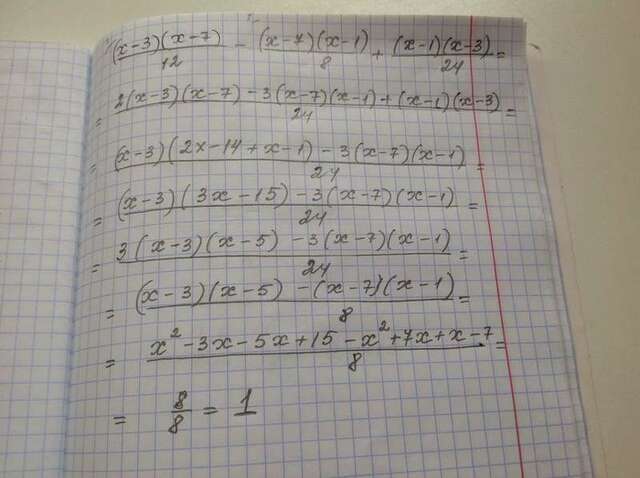 (x-3)(x-7)/12 - (x-7)(x-1)/8 + (x-1)(x-3)/24 =
= 2(x-3)(x-7) - 3(x-7)(x-1) + (x-1)(x-3)/24 =
= (x-3)(2x-14+x-1) - 3(x-7)(x-1)/24 =
= (x-3)(3x-15) - 3(x-7)(x-1)/24 =
= 3(x-3)(x-5) - 3(x-7)(x-1)/24 =
= (x-3)(x-5) - (x-7)(x-1)/8 =
= x²-3x-5x+15-x²+7x+x-7/8 =
= 8/8 = 1